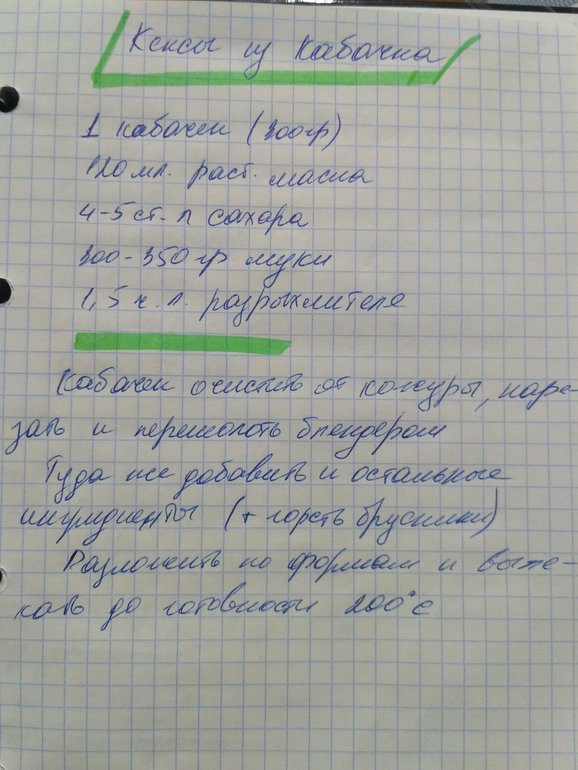 Кексы из кабачка
1 кабачек (300гр)
120 мл. раст. масла
4-5 ст. л сахара
300-350 гр муки
1,5 ч. л. разрыхлителя
Кабачек очистить от кожуры, наре-
зать и перемолоть блендером
Туда же добавить и остальные
ингридиенты (+ горсть брусники)
Разложить по формам и выпе-
кать до готовности 200°С